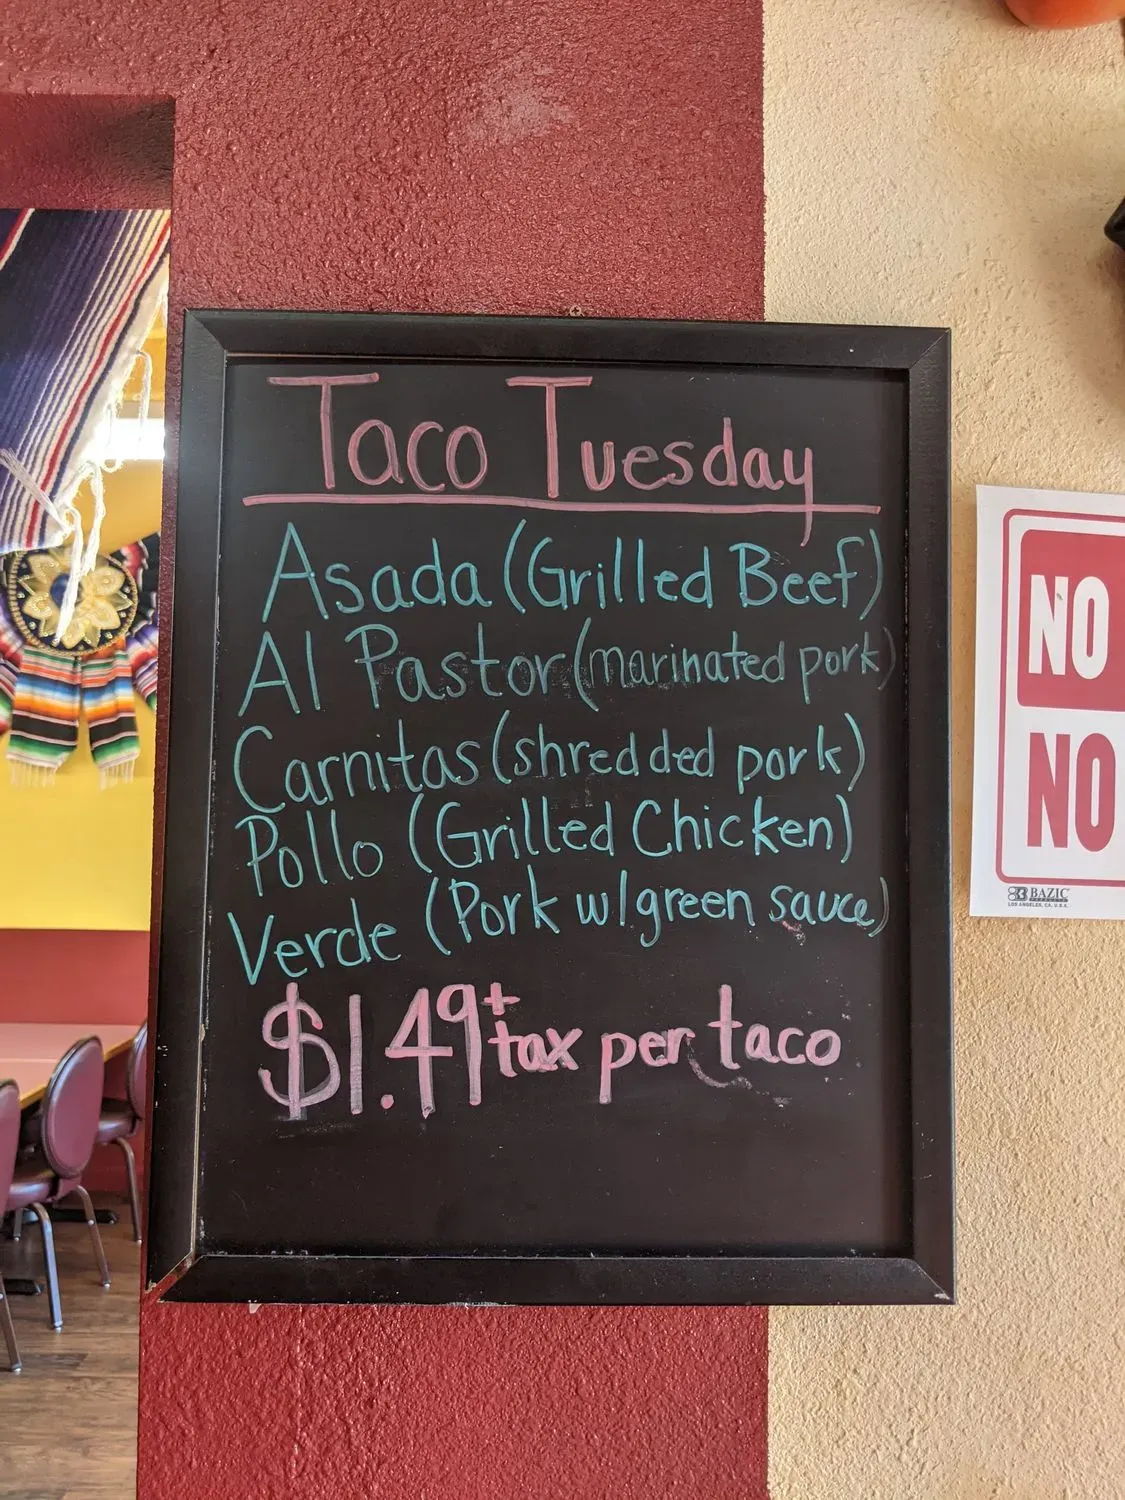 Taco Tuesday
Asada (Grilled Beef)
Al Pastor (marinated pork)
Carnitas (shredded pork)
Pollo (Grilled Chicken)
Verde (Pork w/green sauce)
$1.49 + tax per taco
NO
NO
BAZIC
PRODUCTS
LOS ANGELES, CA. U.S.A.